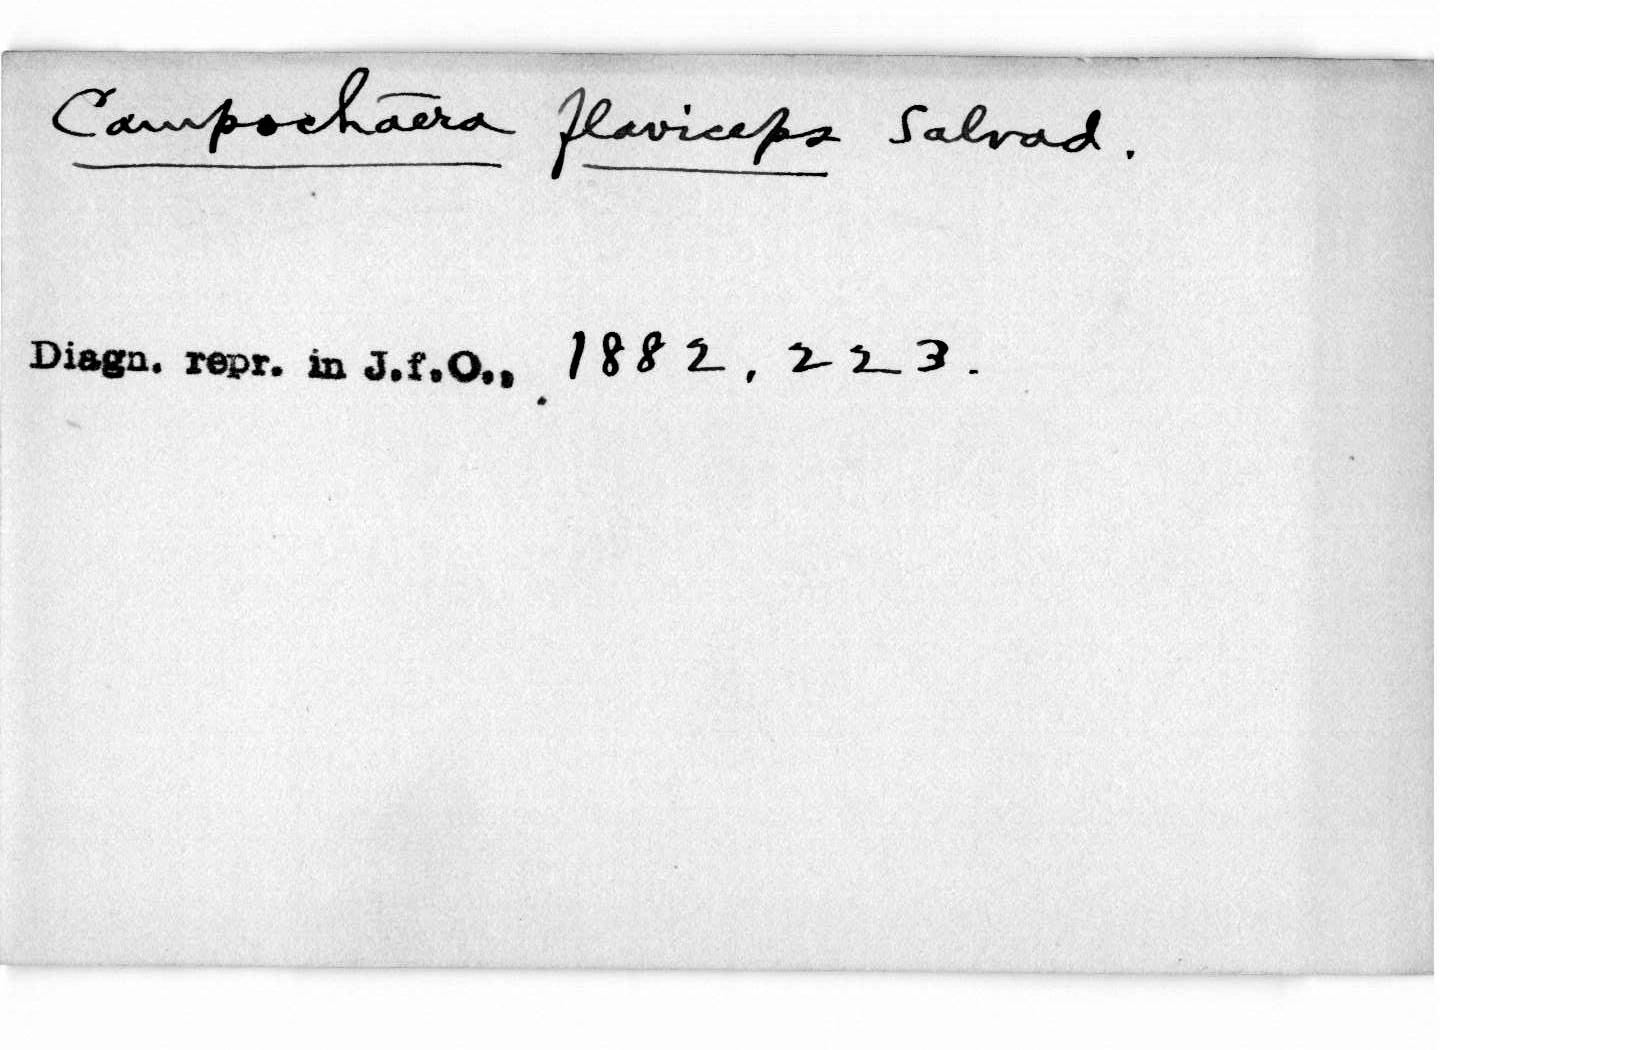 Campochaera flaviceps Salvad.
Diagn. repr. in J.f.O., 1882, 223.